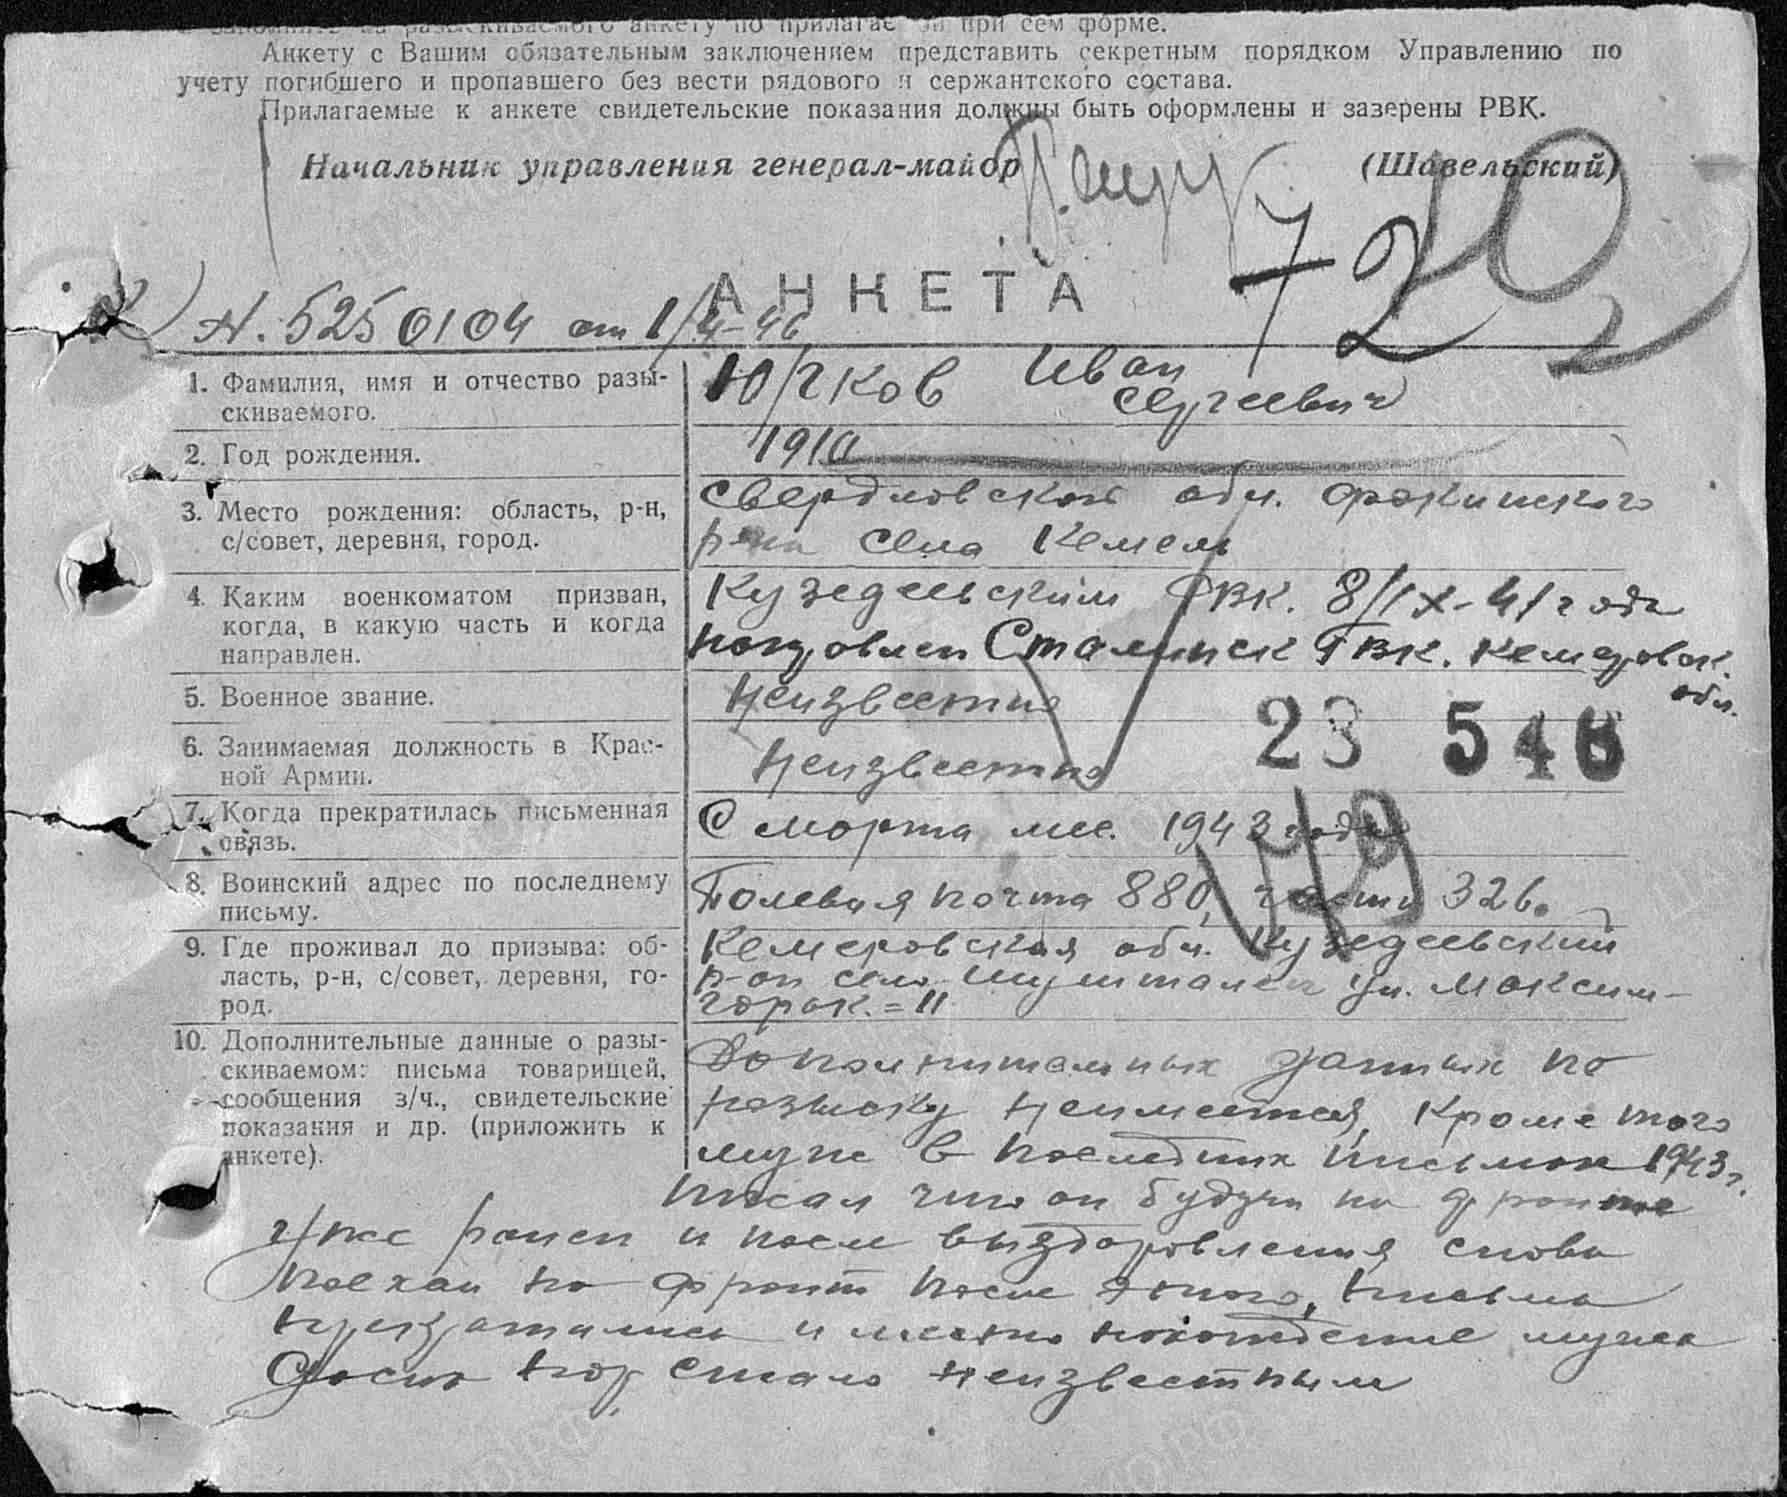 анкету по прилагае при сем форме.
Анкету с Вашим обязательным заключением представить секретным порядком Управлению по
учету погибшего и пропавшего без вести рядового и сержантского состава.
Прилагаемые к анкете свидетельские показания должны быть оформлены и заверены РВК.
Начальник управления генерал-майор (Шавельский)
720
АНКЕТА
N. 5250104 от 1/4-46
1. Фамилия, имя и отчество разы-
скиваемого.
Иван
Сергеевич
2. Год рождения.
1910
3. Место рождения: область, р-н,
с/совет, деревня, город.
Свердловской обл.
села
4. Каким военкоматом призван,
когда, в какую часть и когда
направлен.
Кузедеевским РВК. 8/IX-41 года
направлен Сталинск ГВК. Кемеровск.
обл.
5. Военное звание.
Неизвестно
23 548
6. Занимаемая должность в Крас-
ной Армии.
Неизвестно
7. Когда прекратилась письменная
связь.
С марта мес. 1943 года
179
8. Воинский адрес по последнему
письму.
Полевая почта 880, часть 326.
9. Где проживал до призыва: об-
ласть, р-н, с/совет, деревня, го-
род.
Кемеровская обл. Кузедеевский
р-он село ул. Максим-
горьк. = 11
10. Дополнительные данные о разы-
скиваемом: письма товарищей,
сообщения з/ч., свидетельские
показания и др. (приложить к
анкете).
Дополнительных данных по
розыску неимеется, Кроме того
муж в последних письмах 1943г.
писал что он будучи на фронте
уже ранен и после выздоровления снова
поехал на фронт после этого, письма
прекратились и место нахождение мужа
досих пор стало неизвестным